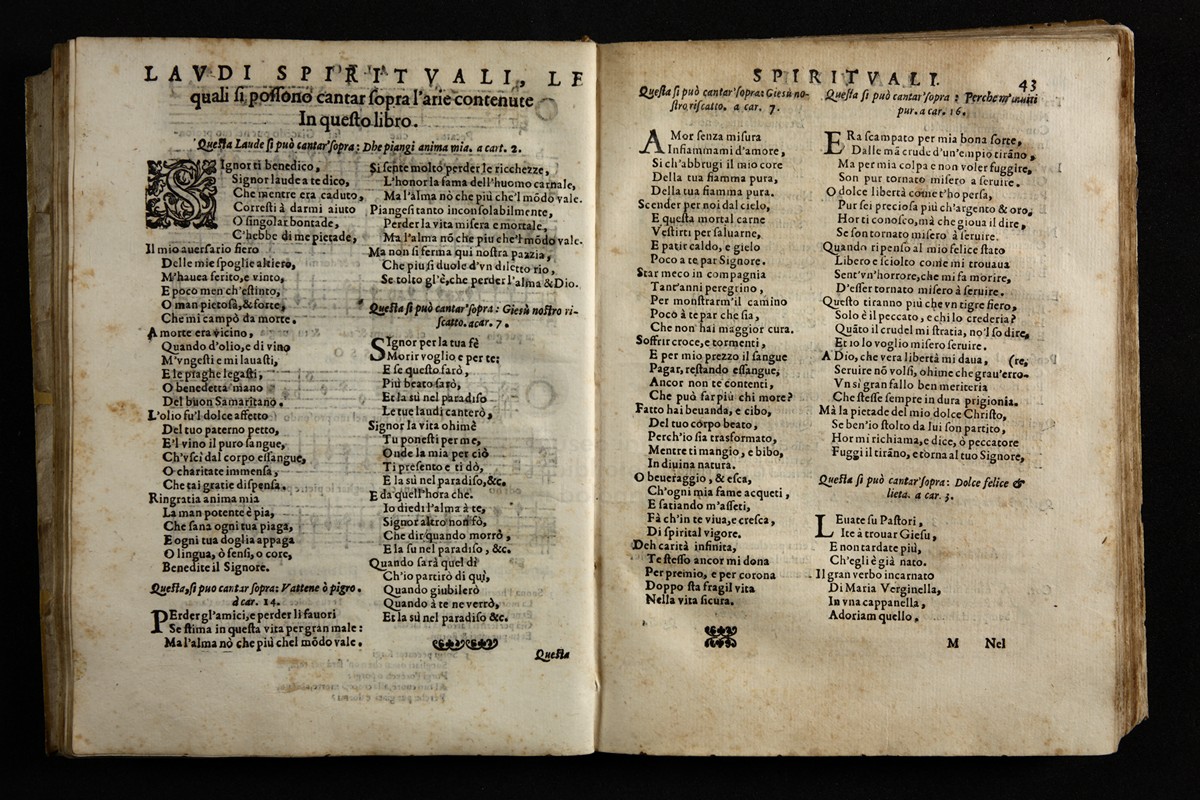 LAVDI SPIRITVALI, LE
quali si possono cantar sopra l'arie contenute
In questo libro.
Questa Laude si può cantar' sopra: Dhe piangi anima mia. a cart. 2.
SIgnor ti benedico,
Signor laude a te dico,
Che mentre era caduto,
Corresti à darmi aiuto
O singolar bontade,
C'hebbe di me pietade,
Il mio auersario fiero
Delle mie spoglie altiero,
M'hauea ferito, e vinto,
E poco men ch'estinto,
O man pietosa, & forte,
Che mi campò da morte.
A morte era vicino,
Quando d'olio, e di vino
M'vngesti e mi lauasti,
E le piaghe legasti,
O benedetta mano
Del buon Samaritano.
L'olio fu'l dolce affetto
Del tuo paterno petto,
E'l vino il puro sangue,
Ch'vscì dal corpo essangue,
O charitate immensa,
Che tai gratie dispensa.
Ringratia anima mia
La man potente è pia,
Che sana ogni tua piaga,
E ogni tua doglia appaga
O lingua, ò sensi, o core,
Benedite il Signore.
Questa, si puo cantar sopra: Vattene ò pigro.
à car. 14.
PErder gl'amici, e perder li fauori
Se stima in questa vita per gran male:
Ma l'alma nò che più chel mōdo vale.
Si sente molto perder le ricchezze,
L'honor la fama dell'huomo carnale,
Ma l'àlma nò che più che'l mōdo vale.
Piangesi tanto inconsolabilmente,
Perder la vita misera e mortale,
Ma l'alma nō che piu che'l mōdo vale.
Ma non si ferma qui nostra pazzia,
Che piu si duole d'vn diletto rio,
Se tolto gl'è, che perder l'alma & Dio.
Questa si può cantar' sopra: Giesù nostro ri-
scatto. a car. 7.
SIgnor per la tua fè
Morir voglio e per te:
E se questo farò,
Più beato sarò,
Et la sù nel paradiso
Le tue laudi canterò,
Signor la vita ohimè
Tu ponesti per me,
Onde la mia per ciò
Ti presento e ti dò,
E la sù nel paradiso, &c.
E da quell'hora che.
Io diedi l'alma à te,
Signor altro non fò,
Che dir quando morrò,
E la su nel paradiso, &c.
Quando sarà quel dì
Ch'io partirò di quì,
Quando giubilerò
Quando à te ne verrò,
Et la sù nel paradiso &c.
Questa
SPIRITVALI.
43
Questa si può cantar' sopra: Giesù no-
stro riscatto. a car. 7.
AMor senza misura
Infiammami d'amore,
Si ch'abbrugi il mio core
Della tua fiamma pura,
Della tua fiamma pura.
Scender per noi dal cielo,
E questa mortal carne
Vestirti per saluarne,
E patir caldo, e gielo
Poco a te par Signore.
Star meco in compagnia
Tant'anni peregrino,
Per monstrarm'il camino
Poco à te par che sia,
Che non hai maggior cura.
Soffrir croce, e tormenti,
E per mio prezzo il sangue
Pagar, restando essangue,
Ancor non te contenti,
Che può far più chi more?
Fatto hai beuanda, e cibo,
Del tuo corpo beato,
Perch'io sia trasformato,
Mentre ti mangio, e bibo,
In diuina natura.
O beueraggio, & esca,
Ch'ogni mia fame acqueti,
E satiando m'asseti,
Fà ch'in te viua, e cresca,
Di spirital vigore.
Deh carità infinita,
Te stesso ancor mi dona
Per premio, e per corona
Doppo sta fragil vita
Nella vita sicura.
Questa si può cantar' sopra: Perche m'inuiti
pur. a car. 16.
ERa scampato per mia bona sorte,
Dalle mã crude d'un'empio tirãno,
Ma per mia colpa e non voler fuggire,
Son pur tornato misero a seruire.
O dolce libertà come t'ho persa,
Pur sei preciosa più ch'argento & oro,
Hor ti conosco, mà che gioua il dire,
Se son tornato misero à seruire.
Quando ripenso al mio felice stato
Libero e sciolto come mi trouaua
Sent'vn'horrore, che mi fa morire,
D'esser tornato misero à seruire.
Questo tiranno più che vn tigre fiero,
Solo è il peccato, e chi lo crederia?
Quãto il crudel mi stratia, no'l so dire,
Et io lo voglio misero seruire.
A Dio, che vera libertà mi daua, (re,
Seruire nō volsi, ohime che grau'erro-
Vn si gran fallo ben meriteria
Che stesse sempre in dura prigionia.
Mà la pietade del mio dolce Christo,
Se ben'io stolto da lui son partito,
Hor mi richiama, e dice, ò peccatore
Fuggi il tirãno, e torna al tuo Signore,
Questa si può cantar' sopra: Dolce felice &
lieta. a car. 3.
LEuate su Pastori,
Ite à trouar Giesu,
E non tardate più,
Ch'egli è già nato.
Il gran verbo incarnato
Di Maria Verginella,
In vna cappanella,
Adoriam quello.
M Nel